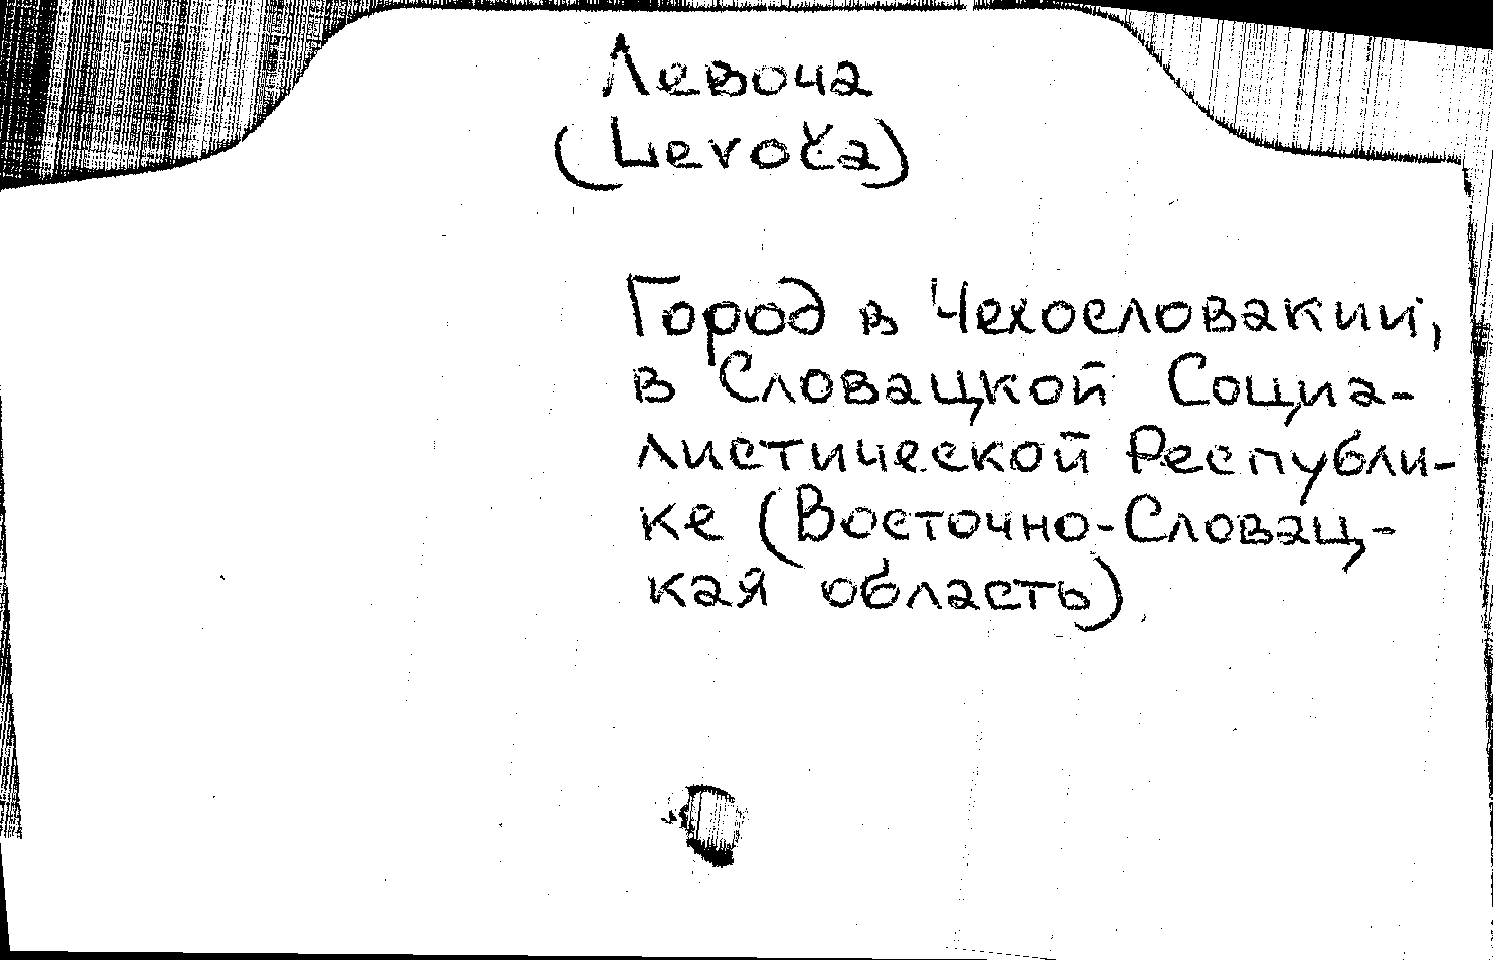 Левоча
(Levoča)
Город в Чехословакии,
в Словацкой Социа-
листической Республи-
ке (Восточно-Словац-
кая область)